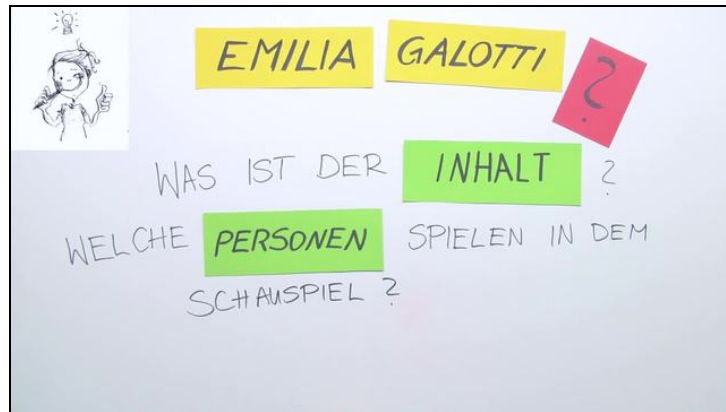 EMILIA GALOTTI ?
WAS IST DER INHALT ?
WELCHE PERSONEN SPIELEN IN DEM
SCHAUSPIEL ?